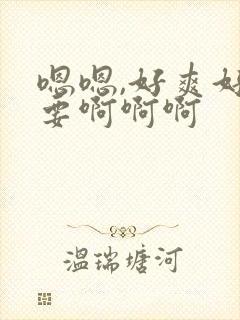 嗯嗯,好爽好
要啊啊啊
温瑞塘河